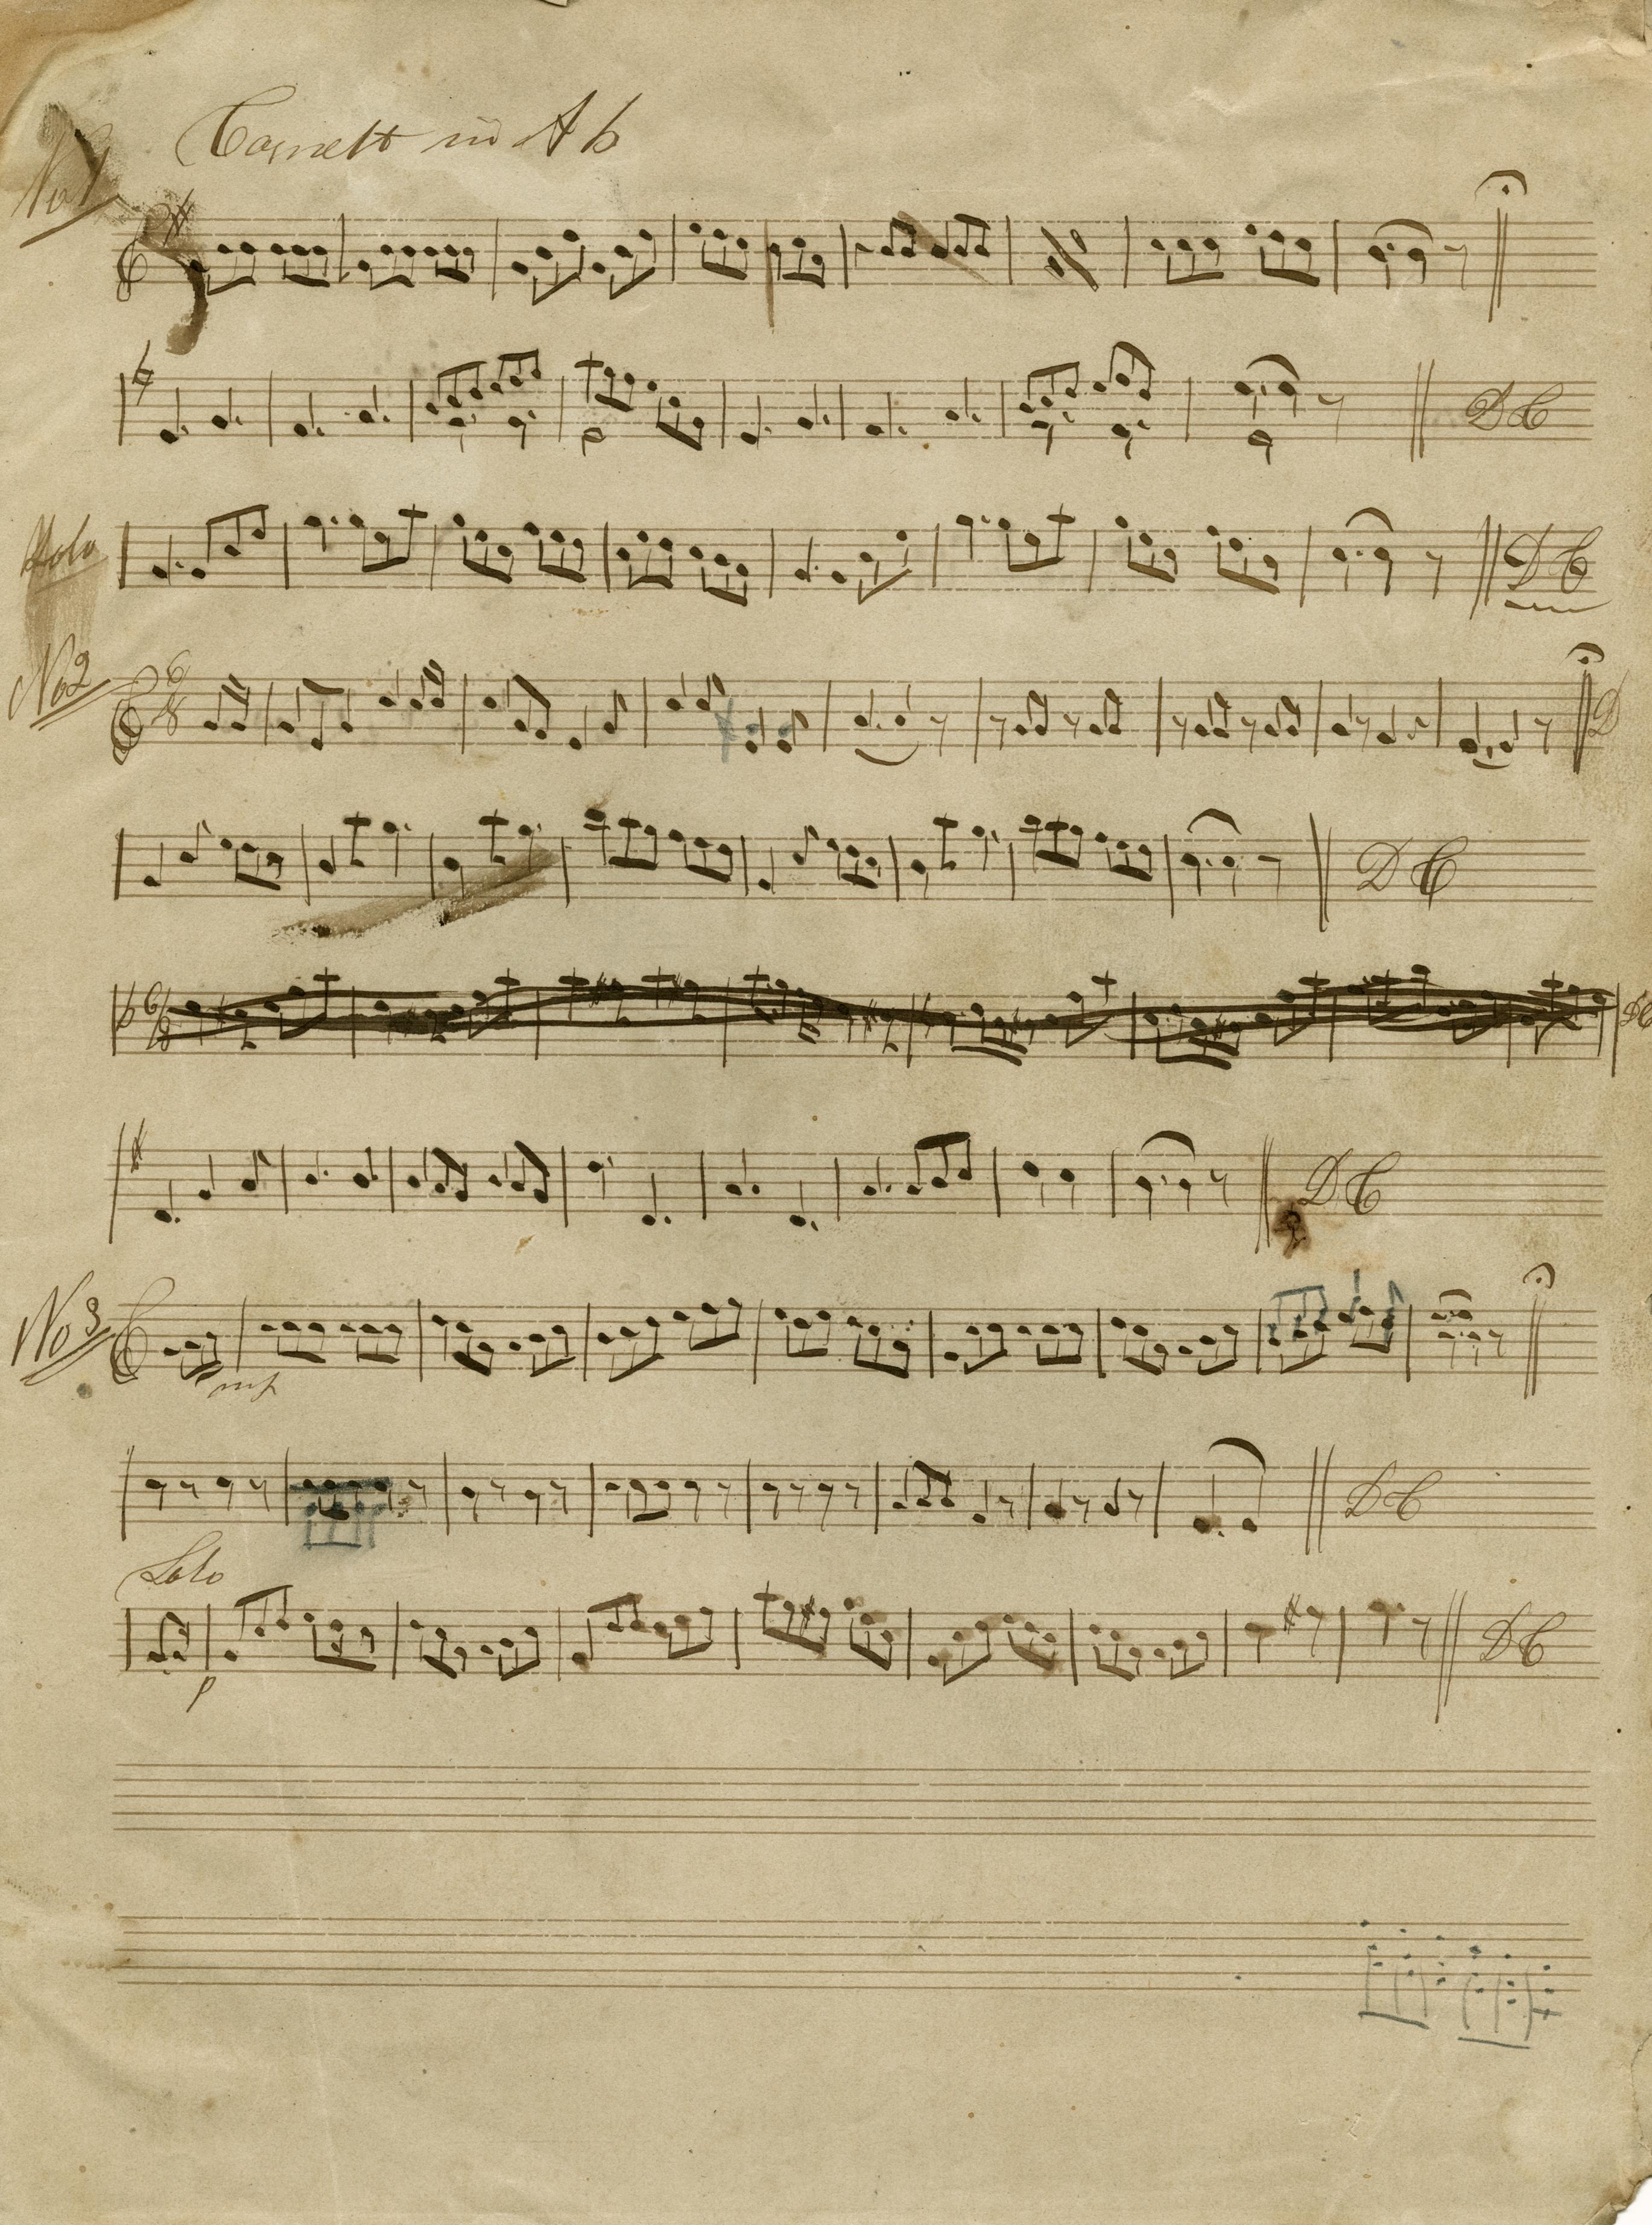 Cornett in A b
No 1
D C
Solo
D C
No 2
6
8
D
D C
6
8
D C
D C
No 3
mf
D C
Solo
p
D C